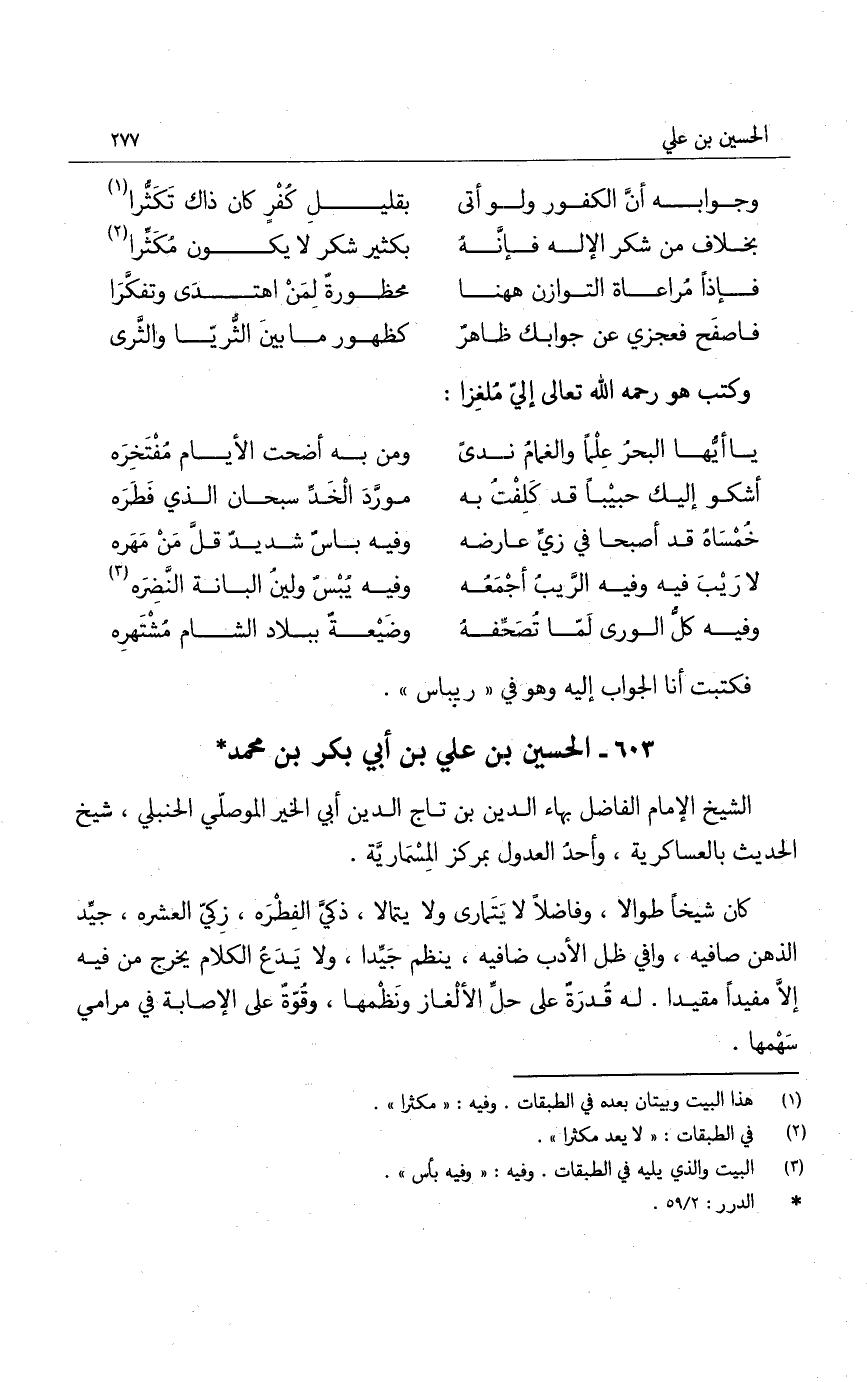 الحسين بن علي ٢٧٧
وجوابه أنَّ الكفور ولو أتى بقليل كُفْرٍ كان ذاك تَكَثُّرا(١)
بخلاف من شكر الإله فإنَّهُ بكثير شكر لا يكون مُكَثِّرا(٢)
فإذاً مُراعاة التوازن ههنا محظورةٌ لِمَنْ اهتدَى وتفكَّرَا
فاصفَح فعجزي عن جوابك ظاهرٌ كظهور ما بينَ الثُّريّا والثَّرى
وكتب هو رحمه الله تعالى إليّ مُلغِزا :
يا أيُّها البحرُ عِلْماً والغمامُ ندىً ومن به أضحت الأيام مُفْتَخِرَه
أشكو إليك حبيْباً قد كَلِفْتُ به مورَّدَ الْخَدِّ سبحان الذي فَطَرَه
خُمْسَاهُ قد أصبحا في زيِّ عارضه وفيه باسٌ شديدٌ قلَّ مَنْ مَهَره
لا رَيْبَ فيه وفيه الرَّيبُ أجْمَعُه وفيه يُبْسٌ ولينُ البانة النَّضِرَه(٣)
وفيه كلُّ الورى لَمّا تُصَحِّفهُ وضَيْعةٌ ببلاد الشام مُشْتَهِره
فكتبت أنا الجواب إليه وهو في « ريباس » .
٦٠٣ ـ الحسين بن علي بن أبي بكر بن محمد*
الشيخ الإمام الفاضل بهاء الدين بن تاج الدين أبي الخير الموصلّي الحنبلي ، شيخ
الحديث بالعساكرية ، وأحدُ العدول بمركز المِسْمَاريَّة .
كان شيخاً طوالا ، وفاضلاً لا يَتَمارى ولا يتمالا ، ذكيَّ الفِطْرَه ، زكيّ العشره ، جيِّد
الذهن صافيه ، وافي ظل الأدب ضافيه ، ينظم جَيِّدا ، ولا يَدَعُ الكلام يخرج من فيه
إلاَّ مفيداً مقيدا . له قُدرَةٌ على حلِّ الألْغاز ونَظْمها ، وقُوّةٌ على الإصابة في مرامي
سَهْمها .
(١) هذا البيت وبيتان بعده في الطبقات . وفيه : « مكثرا » .
(٢) في الطبقات : « لا يعد مكثرا » .
(٣) البيت والذي يليه في الطبقات . وفيه : « وفيه بأس » .
* الدرر : ٥٩/٢ .